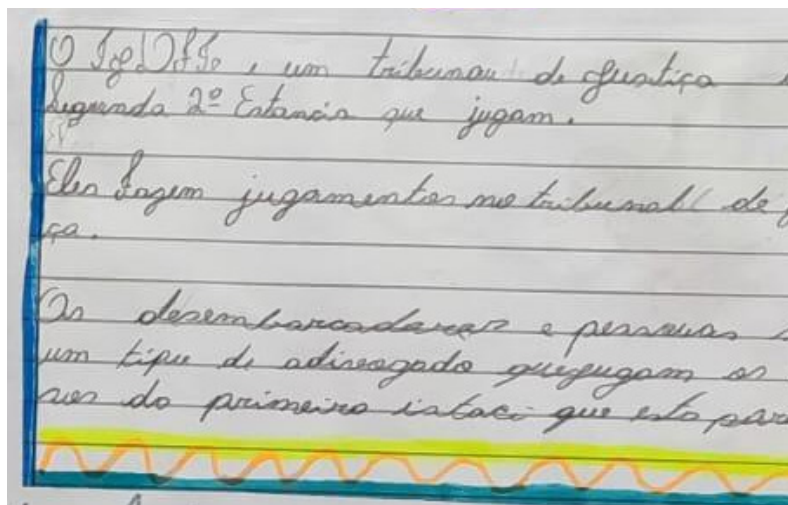 O TJDFT, um tribunau de Justiça
Segunda 2º Estancia que jugam.
Eles fazem jugamentos no tribunal de
ça.
Os desembarcadores e pessouas
um tipu de adivogado quejugam os
do primeira istaci que esta par